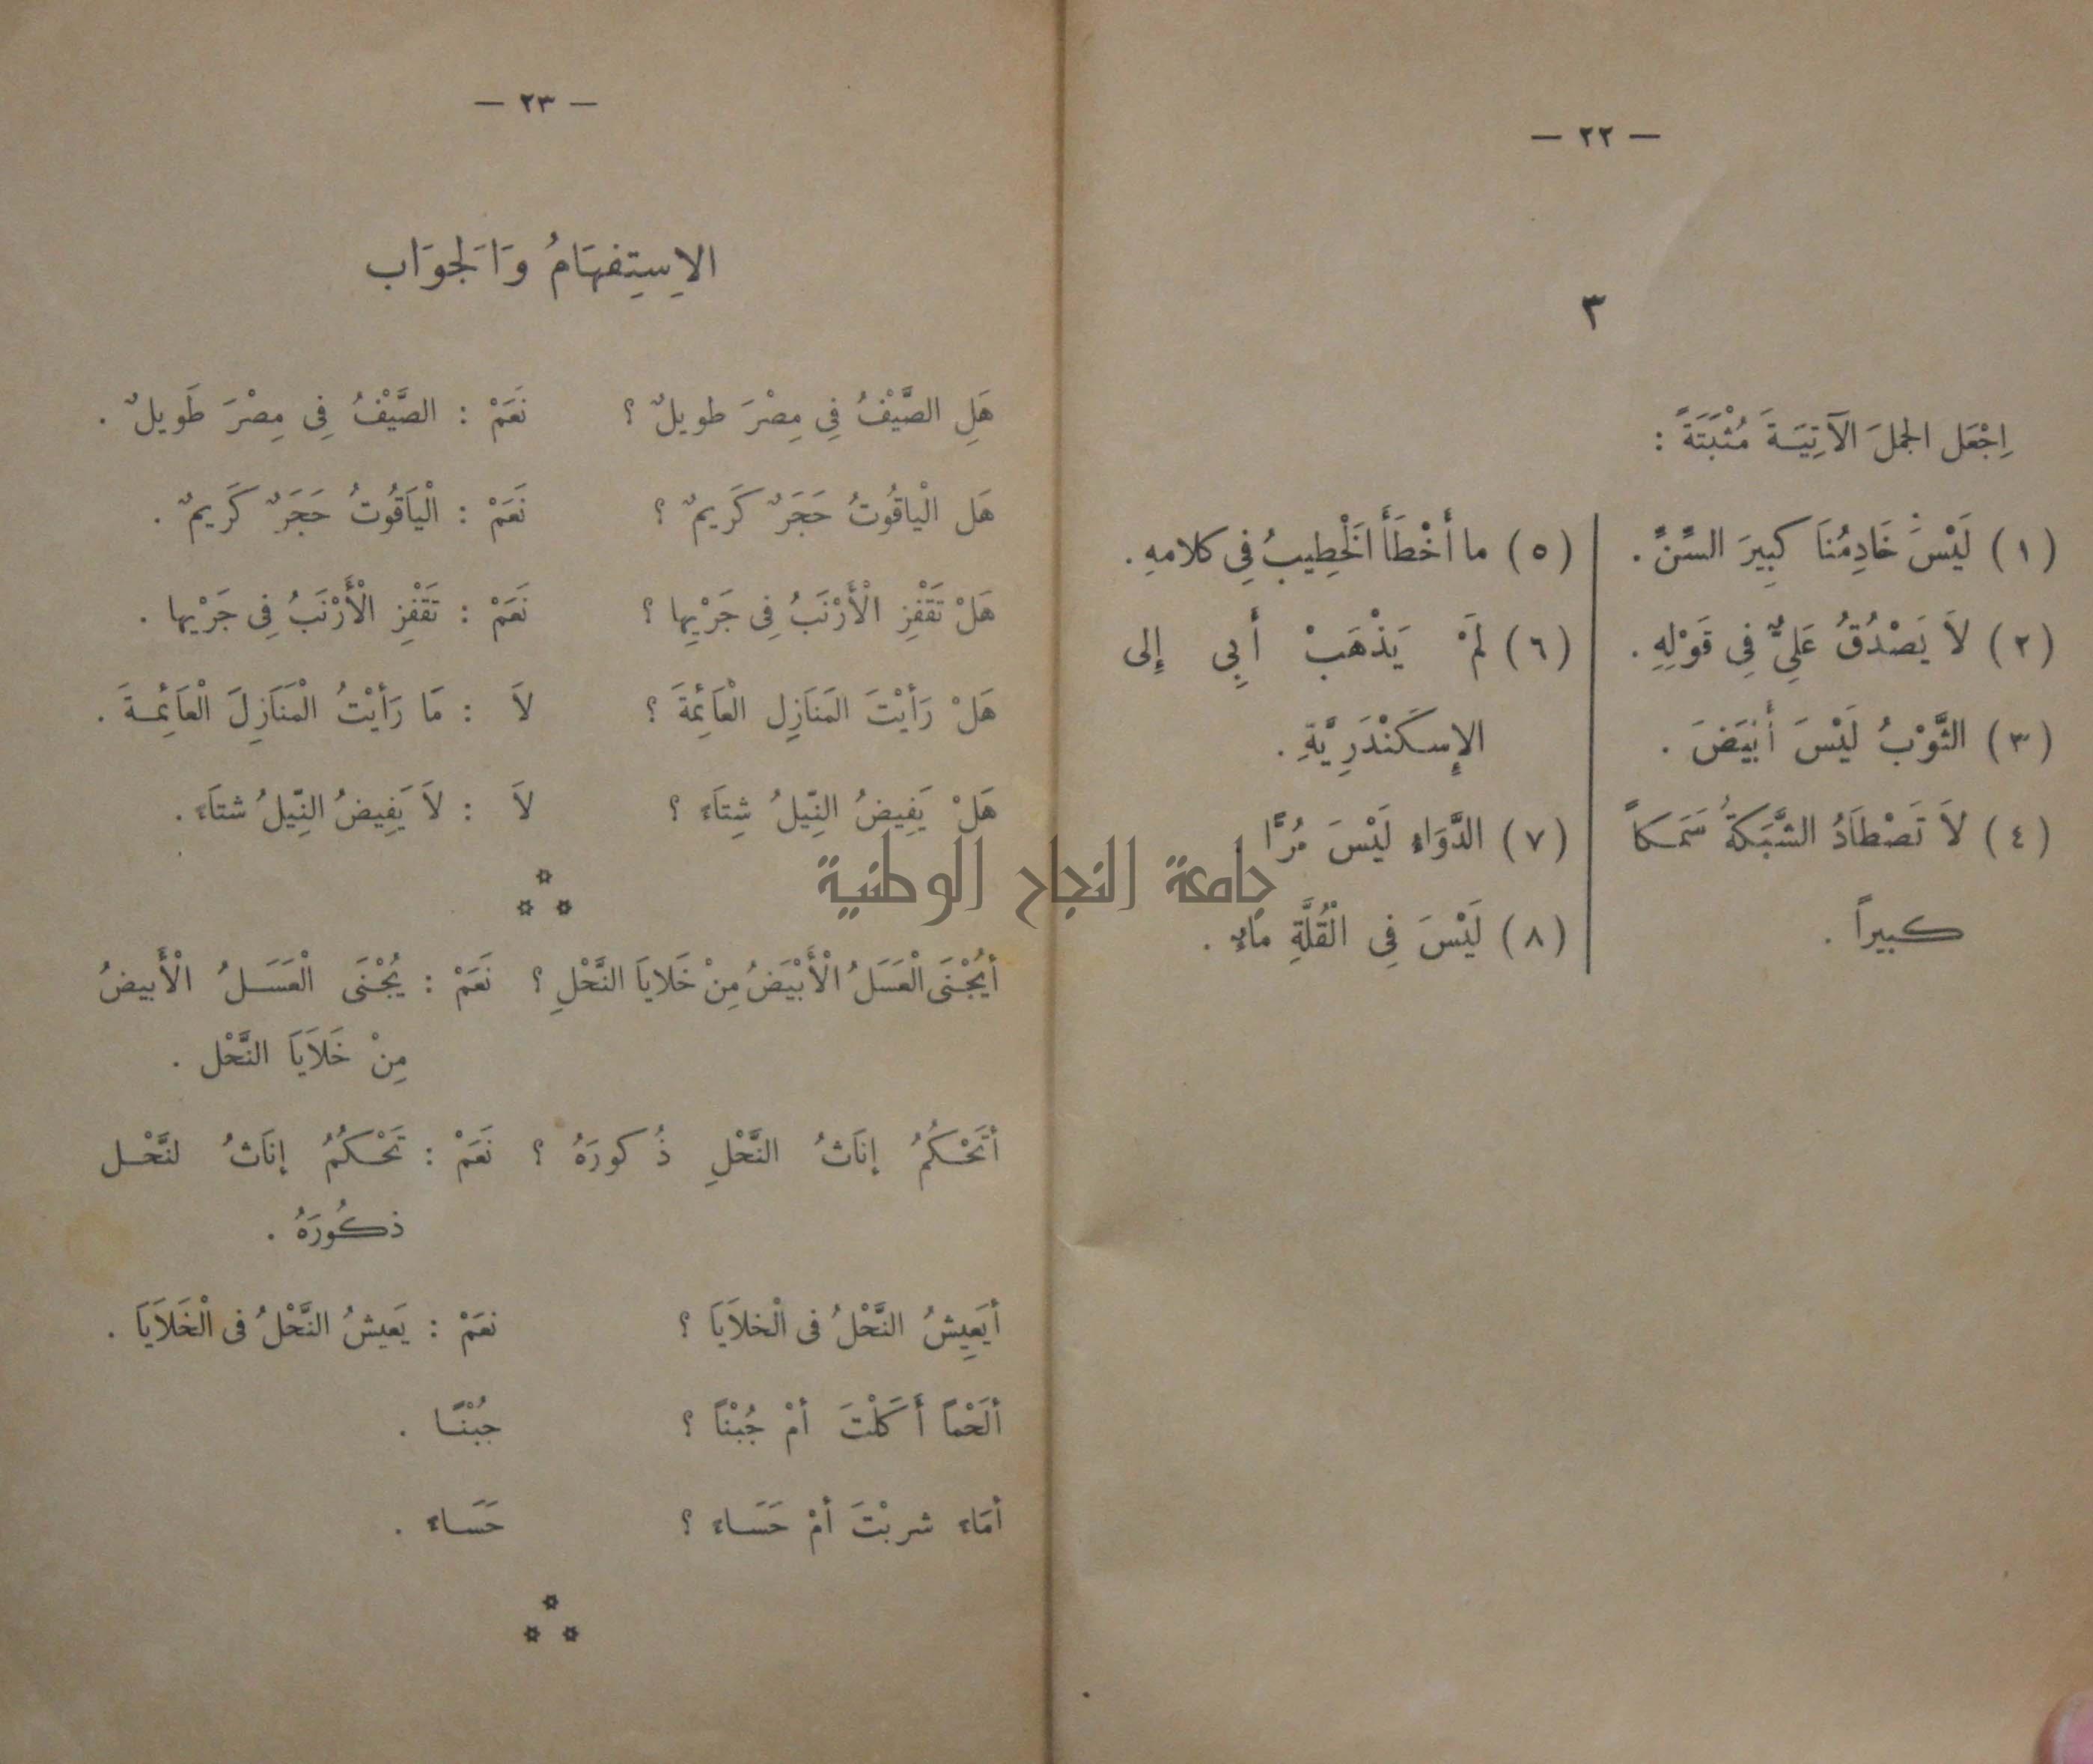 — ٢٢ —
٣
اِجْعَل الجملَ الآتِيَةَ مُثْبَتَةً :
(١) لَيْسَ خَادِمُنَا كبِيرَ السِّنِّ .
(٢) لاَ يَصْدُقُ عَلِيٌّ فِى قَوْلِهِ .
(٣) الثَّوْبُ لَيْسَ أَبْيَضَ .
(٤) لاَ تَصْطَادُ الشَّبَكَةُ سَمَكاً
كبيراً .
(٥) ما أَخْطَأَ الْخَطِيبُ فِى كلامهِ .
(٦) لَمْ يَذْهَبْ أَبِى إِلى
الإِسكَنْدَرِيَّةِ .
(٧) الدَّوَاءِ لَيْسَ مُرًّا
(٨) لَيْسَ فِى الْقُلَّةِ مَاءٌ .
— ٢٣ —
الاِستِفهَامُ وَالجوَاب
هَلِ الصَّيْفُ فِى مِصْرَ طويلٌ ؟ نَعَمْ : الصَّيْفُ فِى مِصْرَ طَويلٌ .
هَل الْياقُوتُ حَجَرٌ كَريمٌ ؟ نَعَمْ : الْيَاقُوتُ حَجَرٌ كَريمٌ .
هَلْ تَقْفِز الْأَرْنَبُ فِى جَرْيِها ؟ نَعَمْ : تَقْفِز الْأَرْنَبُ فِى جَرْيها .
هَلْ رَأيْتَ المَنَازِل الْعَائمَةَ ؟ لاَ : مَا رَأيْتُ الْمَنَازِلَ الْعَائِمَةَ .
هَلْ يَفِيضُ النِّيلُ شِتَاءً ؟ لاَ : لاَ يَفِيضُ النِّيلُ شتاءً .
جامعة النجاح الوطنية
أيُجْنَى الْعَسَلُ الْأَبْيَضُ مِنْ خَلايَا النَّحْلِ ؟ نَعَمْ : يُجْنَى الْعَسَلُ الْأَبيضُ
مِنْ خَلاَيَا النَّحْل .
أتَحْكُمُ إنَاثُ النَّحْلِ ذُكورَهُ ؟ نَعَمْ : تَحْكُمُ إنَاثُ لنَّحْل
ذكُورَهُ .
أيَعِيشُ النَّحْلُ فى الْخلاَيَا ؟ نعَمْ : يَعيشُ النَّحْلُ فى الْخَلاَيَا .
ألَحْماً أَكَلْتَ أمْ جُبْناً ؟ جُبْنًا .
أمَاءً شربْتَ أمْ حَسَاءً ؟ حَسَاءً .